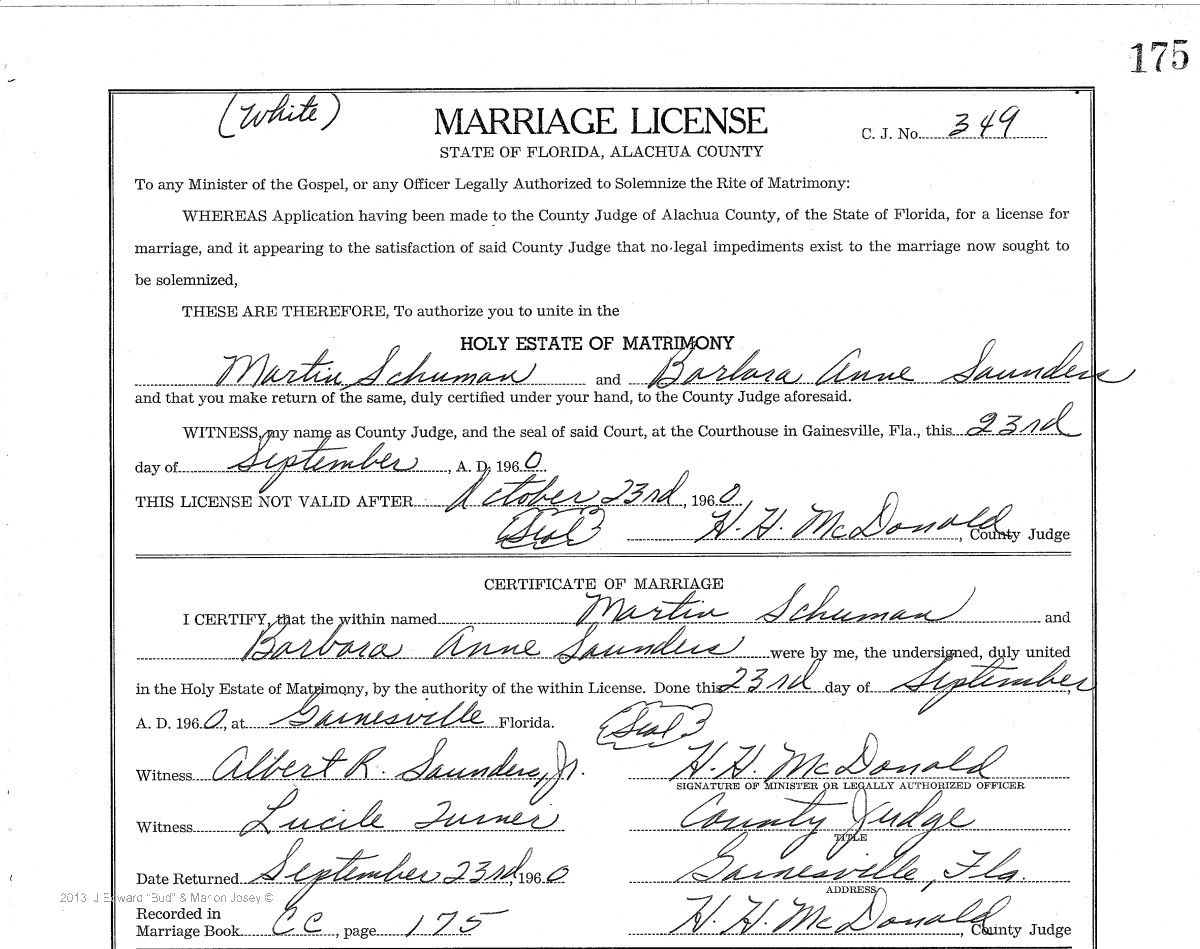 175
(White)
MARRIAGE LICENSE
C. J. No. 349
STATE OF FLORIDA, ALACHUA COUNTY
To any Minister of the Gospel, or any Officer Legally Authorized to Solemnize the Rite of Matrimony:
WHEREAS Application having been made to the County Judge of Alachua County, of the State of Florida, for a license for
marriage, and it appearing to the satisfaction of said County Judge that no legal impediments exist to the marriage now sought to
be solemnized,
THESE ARE THEREFORE, To authorize you to unite in the
HOLY ESTATE OF MATRIMONY
Martin Schuman and Barbara Anne Saunders
and that you make return of the same, duly certified under your hand, to the County Judge aforesaid.
WITNESS, my name as County Judge, and the seal of said Court, at the Courthouse in Gainesville, Fla., this 23rd
day of September, A. D. 1960
THIS LICENSE NOT VALID AFTER October 23rd, 1960
(Seal) H. H. McDonald, County Judge
CERTIFICATE OF MARRIAGE
I CERTIFY, that the within named Martin Schuman and
Barbara Anne Saunders were by me, the undersigned, duly united
in the Holy Estate of Matrimony, by the authority of the within License. Done this 23rd day of September,
A. D. 1960, at Gainesville Florida. (Seal)
Witness Albert R. Saunders, Jr. H. H. McDonald
SIGNATURE OF MINISTER OR LEGALLY AUTHORIZED OFFICER
Witness Lucile Turner County Judge
TITLE
Date Returned September 23rd, 1960 Gainesville, Fla.
ADDRESS
2013 J Edward "Bud" & Marion Josey ©
Recorded in
Marriage Book CC, page 175 H. H. McDonald, County Judge